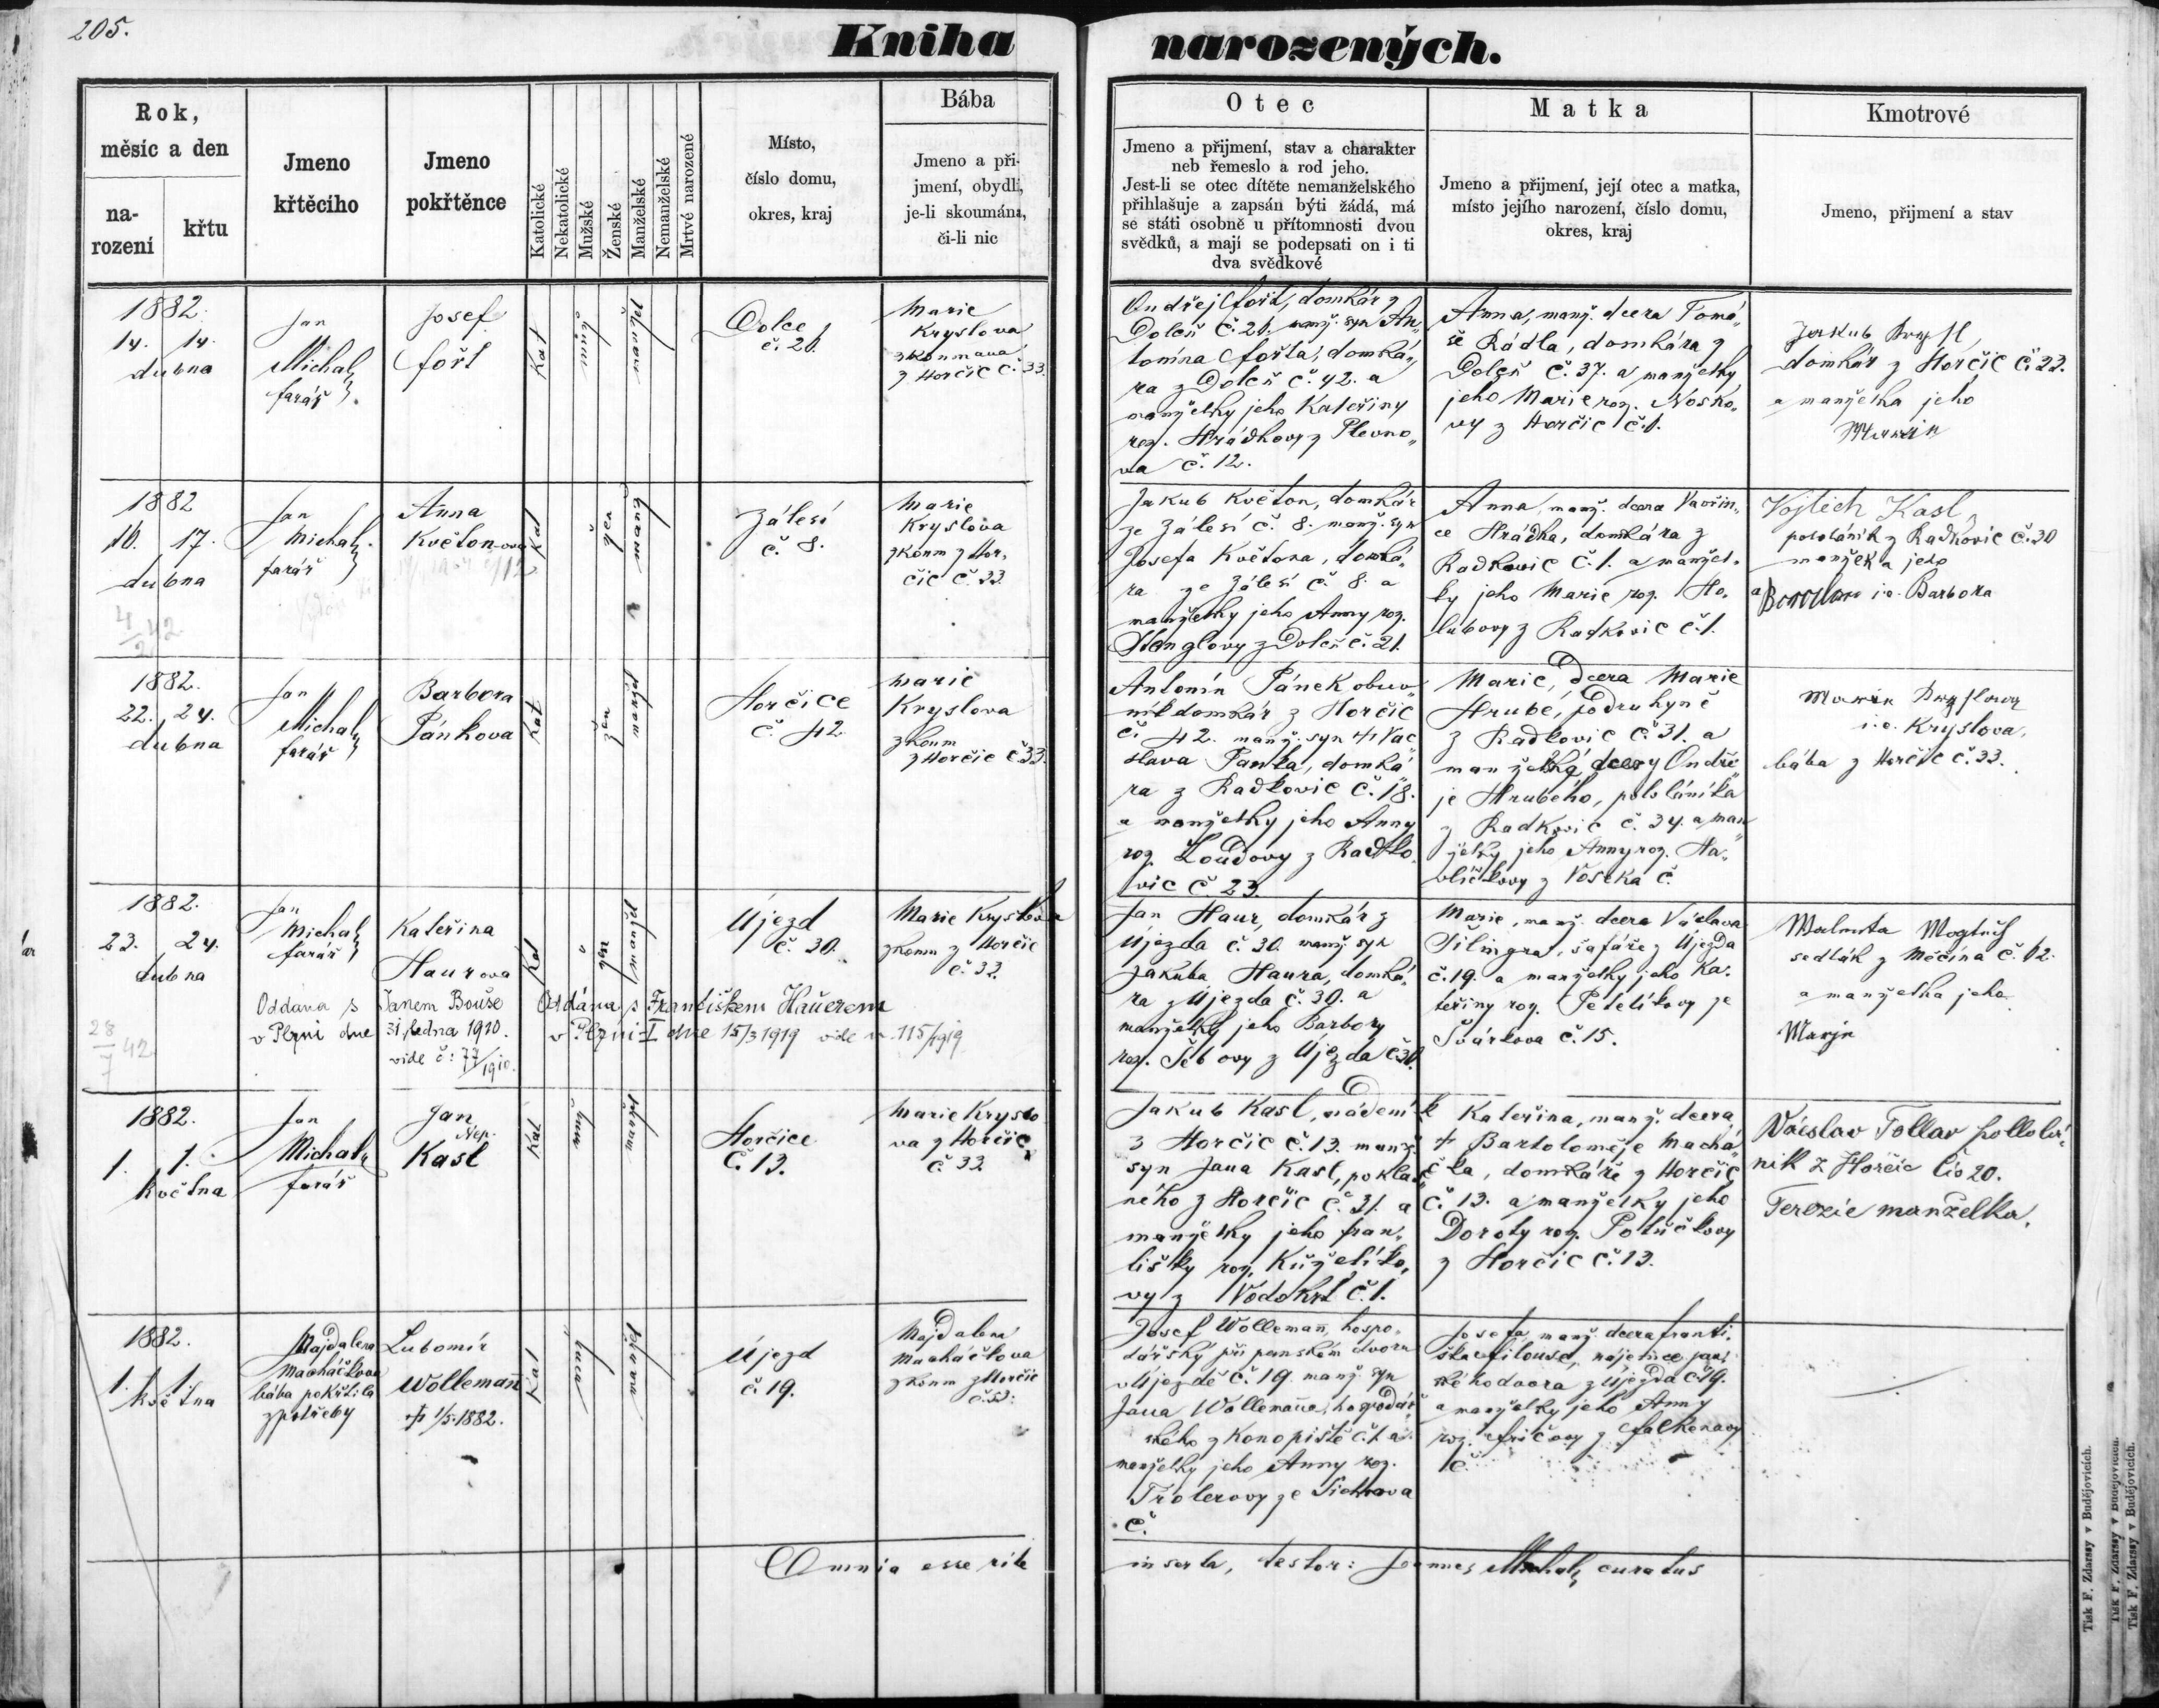 205.
Kniha narozených.
Rok,
měsíc a den
na-
rození
křtu
Jmeno
křtěcího
Jmeno
pokřtěnce
Katolické
Nekatolické
Mužské
Ženské
Manželské
Nemanželské
Mrtvé narozené
Místo,
číslo domu,
okres, kraj
Bába
Jmeno a při-
jmení, obydlí,
je-li skoumána,
či-li nic
Otec
Jmeno a přijmení, stav a charakter
neb řemeslo a rod jeho.
Jest-li se otec dítěte nemanželského
přihlašuje a zapsán býti žádá, má
se státi osobně u přítomnosti dvou
svědků, a mají se podepsati on i ti
dva svědkové
Matka
Jmeno a přijmení, její otec a matka,
místo jejího narození, číslo domu,
okres, kraj
Kmotrové
Jmeno, přijmení a stav
1882.
14. 14.
dubna
Jan
Michal
farář
Josef
Fořt
Kat
muž
manžel
Dolce
č. 21.
Marie
Kryslova
zkoumaná
z Horčic č. 33.
Ondřej Fořt, domkář z
Dolců č. 21. manž. syn An„
tonína Fořta, domká„
ře z Dolců č. 42. a
manželky jeho Kateřiny
roz. Hrádkovy z Plevno„
va č. 12.
Anna, manž. dcera Tomá„
še Rádla, domkáře z
Dolců č. 37. a manželky
jeho Marie roz. Nosko„
vy z Horčic č. 1.
Jakub
domkář z Horčic č. 23.
a manželka jeho
1882
16. 17.
dubna
Jan
Michal
farář
Anna
Květon-ova
Kat
žen
manž
Zálesí
č. 8.
Marie
Kryslova
zkoum z Hor„
čic č. 33.
Jakub Květon, domkář
ze Zálesí č. 8. manž. syn
Josefa Květona, domká„
ra ze Zálesí č. 8. a
manželky jeho Anny roz.
z Dolců č. 21.
Anna, manž. dcera Vavřin„
ce Hrádka, domkára z
Radkovic č. 1. a manžel„
ky jeho Marie roz. Ho„
lubovy z Radkovic č. 1.
Vojtěch Kasl
pololáník z Radkovic č. 30
manželka jeho
a i.e. Barbora
4/2 42
1882.
22. 24.
dubna
Jan
Michal
farář
Barbora
Pánkova
Kat
žen
manžel
Horčice
č. 42.
Marie
Kryslova
zkoum
z Horčic č. 33.
Antonín Pánek obuv„
ník domkář z Horčic
č. 42. manž. syn † Vác
slava Panka, domká„
ra z Radkovic č. 18.
a manželky jeho Anny
roz. Loudovy z Radko„
vic č. 23.
Marie, dcera Marie
Hrubé, podruhyně
z Radkovic č. 31. a
manželky dcery Ondře„
je Hrubého, pololáníka
z Radkovic č. 34. a man„
želky jeho Anny roz. Ha„
vlíčkovy z Vosека č.
i.e. Kryslova,
bába z Horčic č. 33.
1882.
23. 24.
dubna
Jan
Michal
farář
Kateřina
Haurova
Kat
žen
manžel
Újezd
č. 30.
Marie Kryslova
zkoum z Horčic
č. 33.
Oddána s Janem Bouše
v Plzni dne 31. ledna 1910.
vide č: 77/1910.
Oddána s Františkem Hauerem
v Plzni-I dne 15/3 1919 vide n. 115/1919
28/7 42
Jan Haur, domkář z
Újezda č. 30. manž syn
Jakuba Haura, domká„
ra z Újezda č. 30. a
manželky jeho Barbory
roz. Šebovy z Újezda č 30.
Marie, manž. dcera Václava
Šilingra, šafáře z Újezda
č. 19. a manželky jeho Ka„
teřiny roz. Petelíkovy ze
Švárkova č. 15.
sedlák z Měčína č. 62.
a manželka jeho
1882.
1. 1.
května
Jan
Michal
farář
Jan
Nep.
Kasl
Kat
muž
manžel
Horčice
č. 13.
Marie Kryslo
va z Horčic
č. 33.
Jakub Kasl, nádeník
z Horčic č. 13. manž.
syn Jana Kasl, pokla„
ného z Horčic č. 31. a
manželky jeho Fran„
tišky roz. Kuželíko„
vy z Vodokrt č. 1.
Kateřina, manž. dcera
† Bartoloměje Machá„
čka, domkáře z Horčic
č. 13. a manželky jeho
Doroty roz. Potůčkovy
z Horčic č. 13.
Václav Tollar
nik z Horčic čís 20.
Terezie manželka.
1882.
1. 1.
května
Majdalena
Machačkova
bába pokřtila
z potřeby
Lubomír
Wollemann
† 1/5. 1882.
Kat
muž
manžel
Újezd
č. 19.
Majdalena
Machačkova
zkoum z Horčic
Josef Wollemann, hospo„
dářský při panském dvoru
v Újezdě č. 19. manž syn
Jana Wollemanna, hospodář„
ského z Konopiště č. 1. a
manželky jeho Anny roz.
Trolerovy ze
č.
Josefa, manž. dcera Franti„
ška Filousa, nájemce pan„
ského dvora z Újezda č. 19.
a manželky jeho Anny
roz. Fričovy z Falknova
č.
Omnia esse rite inserta, testor: Joannes Michal, curatus
Tisk F. Zdarssy v Budějovicích.
Tisk F. Zdarssy v Budějovicích.
Tisk F. Zdarssy v Budějovicích.